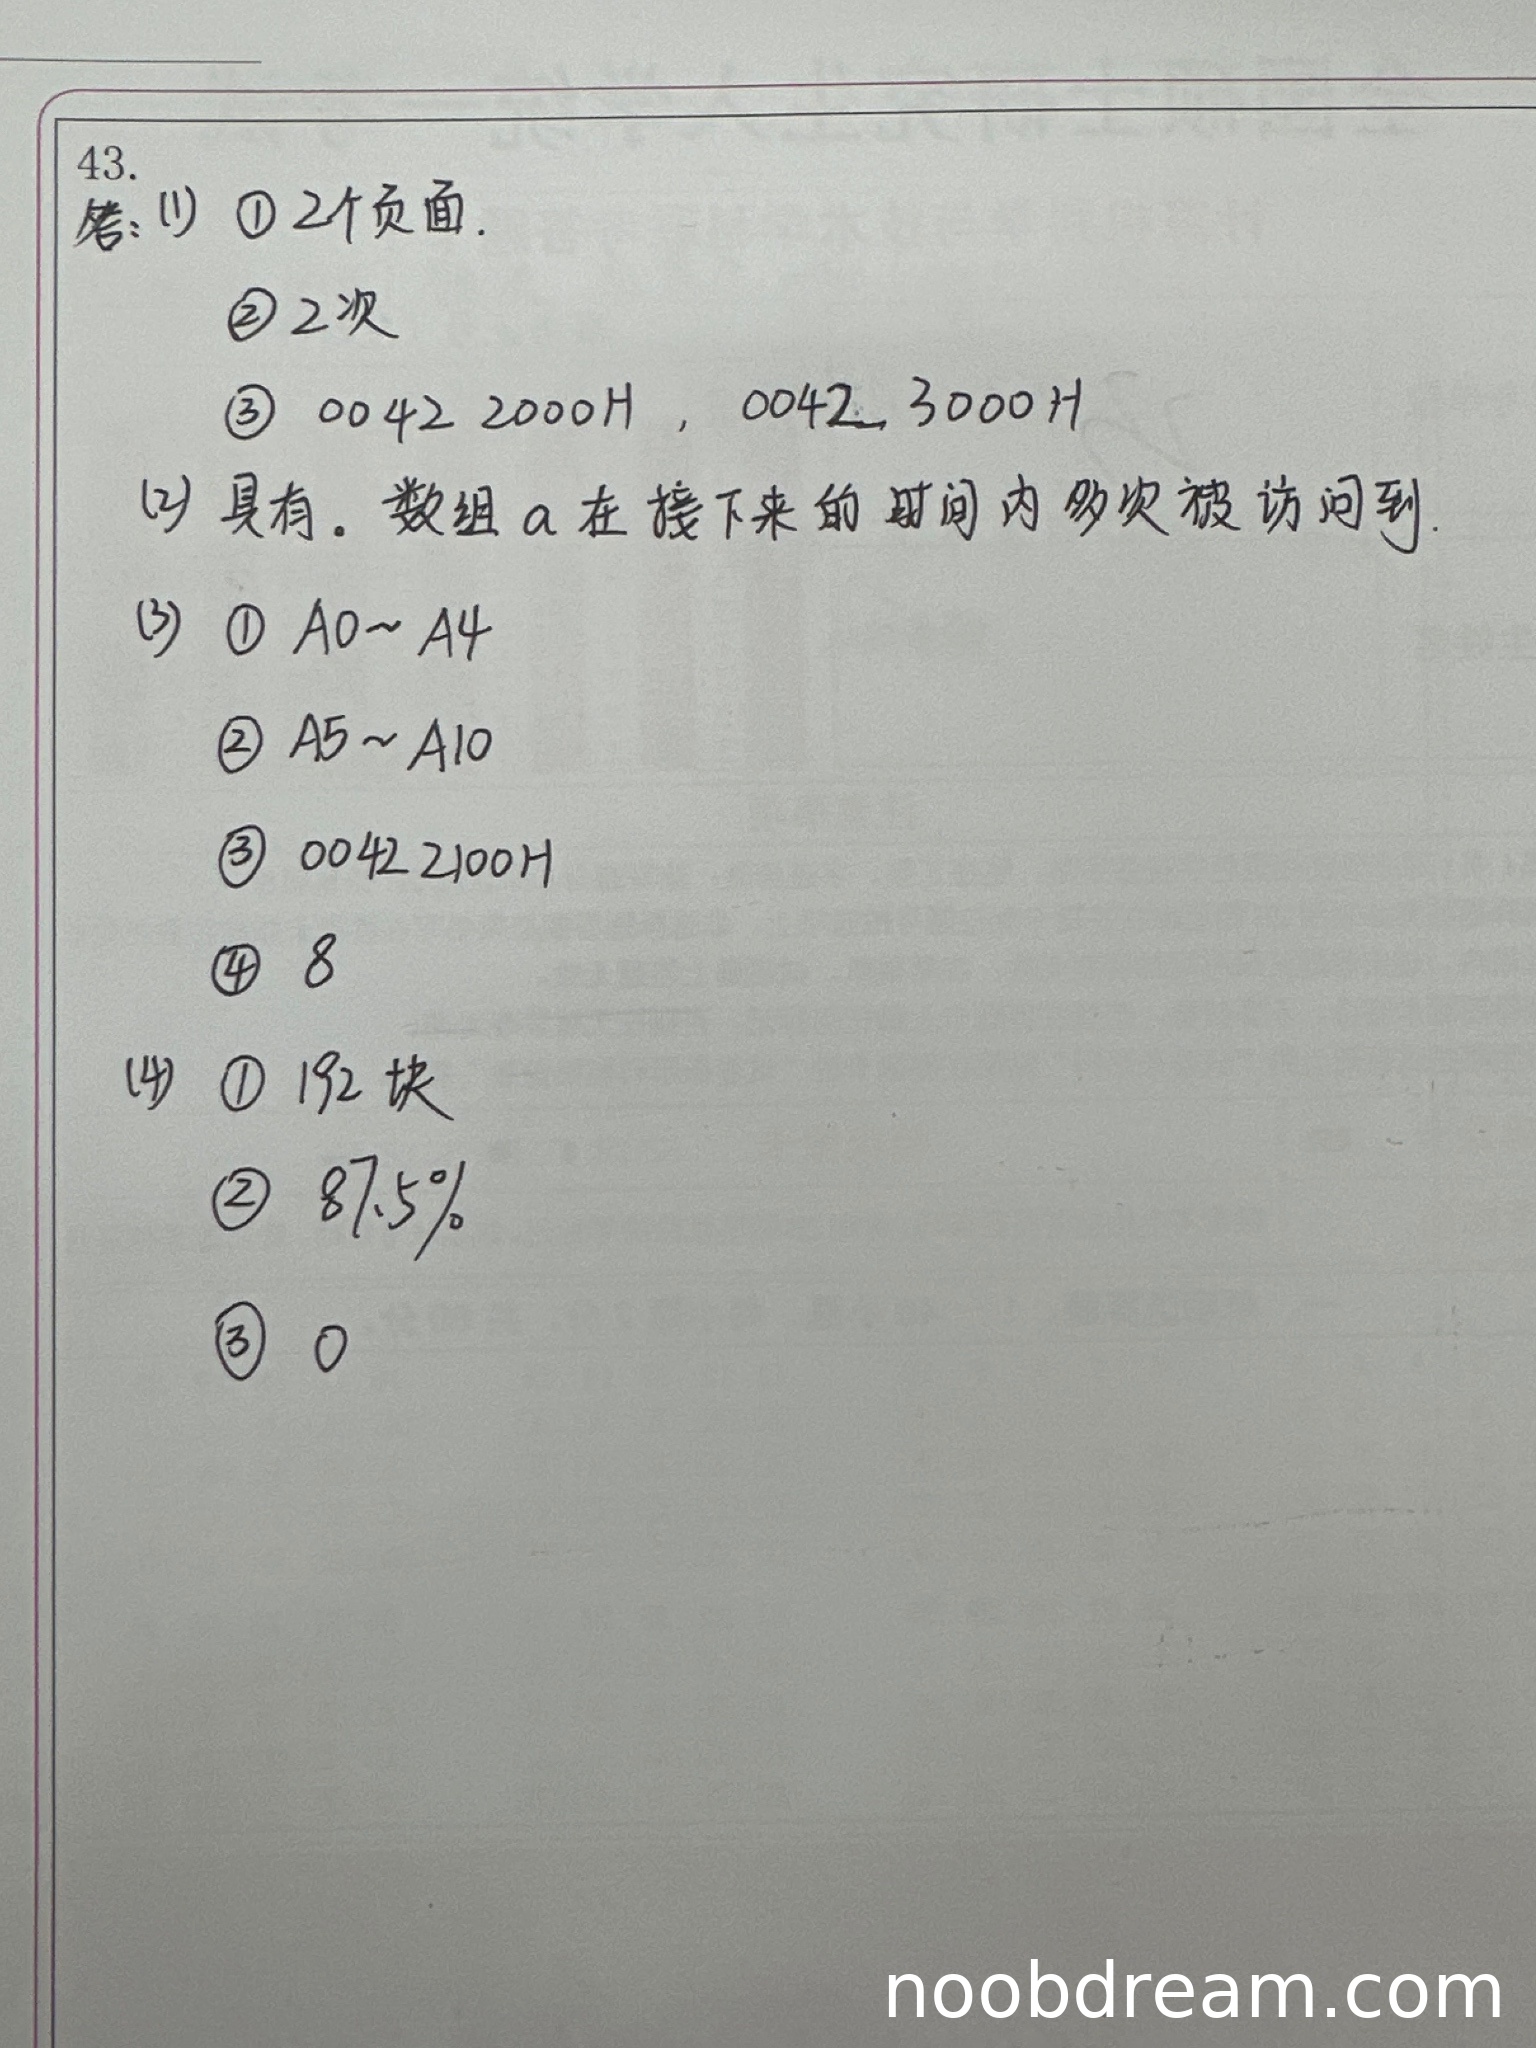 43.
答：(1) ① 2个页面.
② 2次
③ 0042 2000H , 0042 3000H
(2) 具有。数组 a 在接下来的时间内多次被访问到.
(3) ① A0~A4
② A5~A10
③ 0042 2100H
④ 8
(4) ① 192 块
② 87.5%
③ 0
noobdream.com